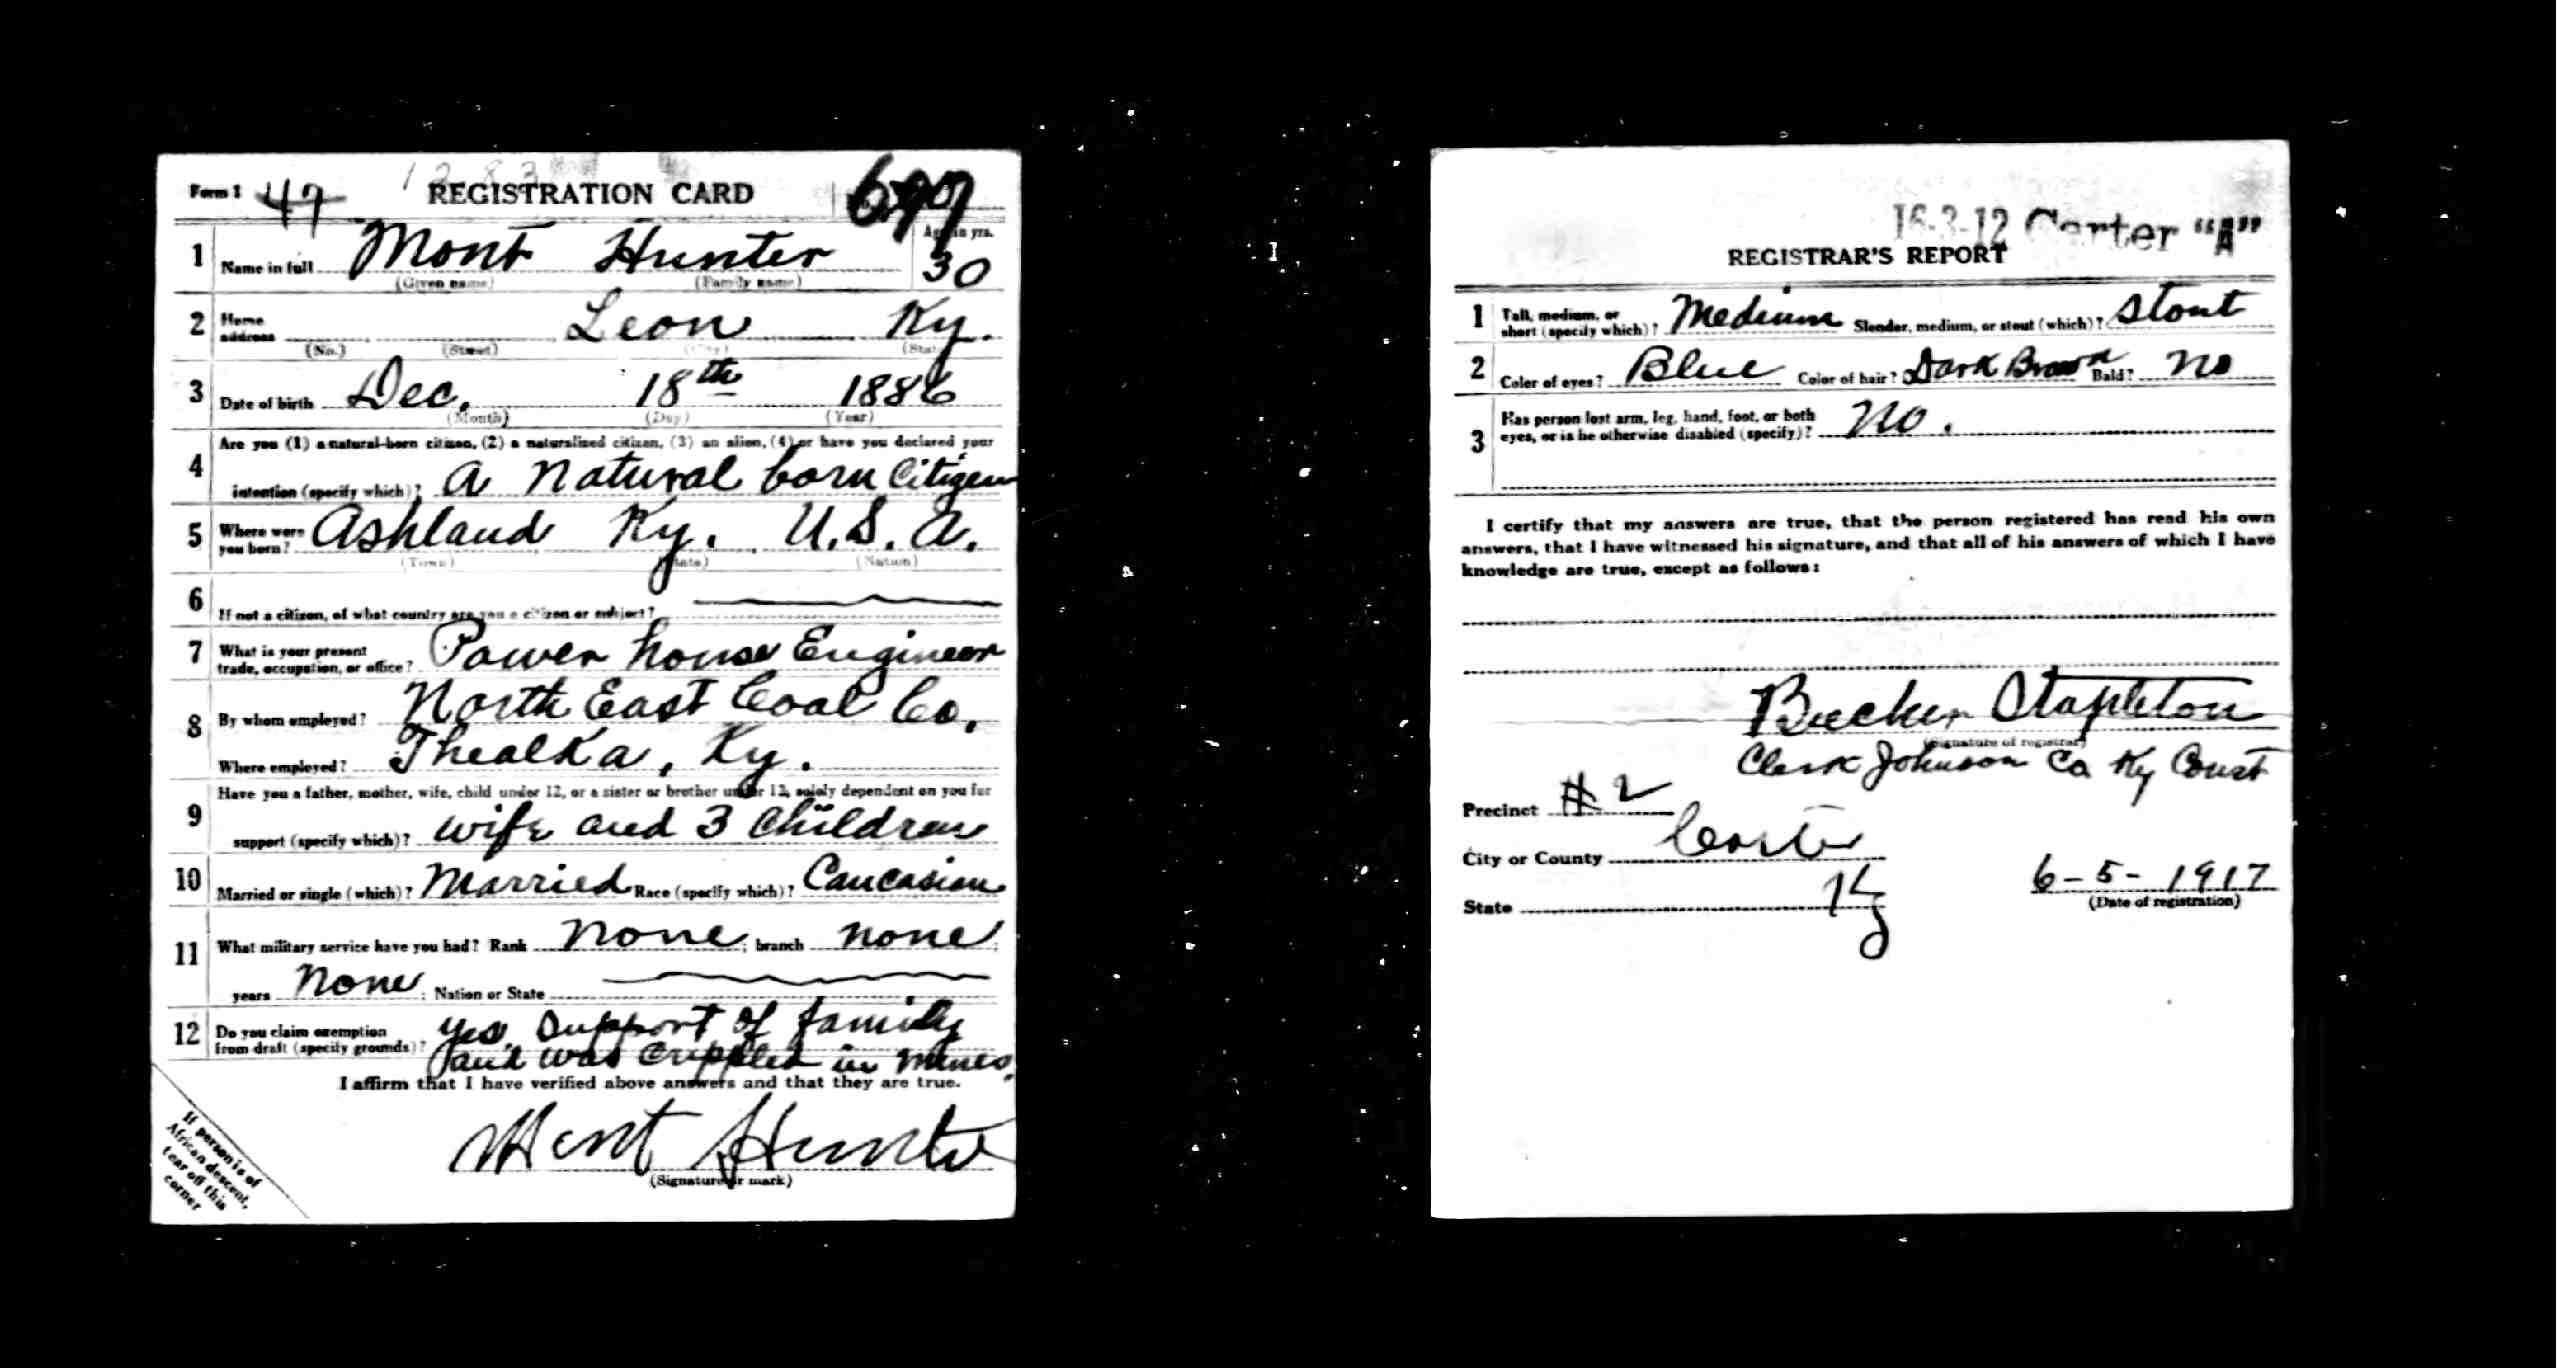 Form 1 47 REGISTRATION CARD
1 Name in full Mont Hunter Age in yrs. 30
(Given name) (Family name)
2 Home address Leon Ky.
(No.) (Street) (City) (State)
3 Date of birth Dec. 18th 1886
(Month) (Day) (Year)
4 Are you (1) a natural-born citizen, (2) a naturalized citizen, (3) an alien, (4) or have you declared your
intention (specify which)? a natural born Citizen
5 Where were you born? Ashland Ky. U.S.A.
(Town) (State) (Nation)
6 If not a citizen, of what country are you a citizen or subject?
7 What is your present trade, occupation, or office? Power house Engineer
8 By whom employed? North East Coal Co.
Where employed? Thealka, Ky.
9 Have you a father, mother, wife, child under 12, or a sister or brother under 12, solely dependent on you for
support (specify which)? wife and 3 Children
10 Married or single (which)? Married Race (specify which)? Caucasian
11 What military service have you had? Rank none; branch none;
years None; Nation or State
12 Do you claim exemption from draft (specify grounds)? yes, Support of family
and was crippled in mines.
I affirm that I have verified above answers and that they are true.
Mont Hunter
(Signature or mark)
If person is of
African descent,
tear off this
corner
16-3-12 Carter "A"
REGISTRAR'S REPORT
1 Tall, medium, or short (specify which)? Medium Slender, medium, or stout (which)? Stout
2 Color of eyes? Blue Color of hair? Dark Brown Bald? No
3 Has person lost arm, leg, hand, foot, or both
eyes, or is he otherwise disabled (specify)? No.
I certify that my answers are true, that the person registered has read his own
answers, that I have witnessed his signature, and that all of his answers of which I have
knowledge are true, except as follows:
Stapleton
(Signature of registrar)
Clerk Johnson Co Ky Court
Precinct #2
City or County Carter
State Ky
6-5-1917
(Date of registration)